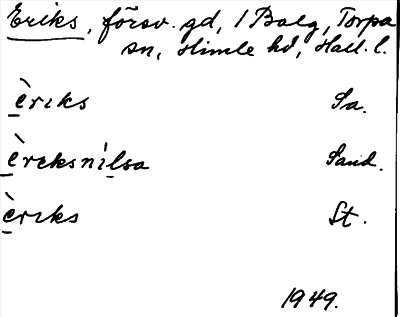 Eriks, försv. gd, 1 Balg, Torpa
sn, Himle hd, Hall. l.
èrıks Sa.
èreksnìlsa Sand.
èrıks St.
1949.